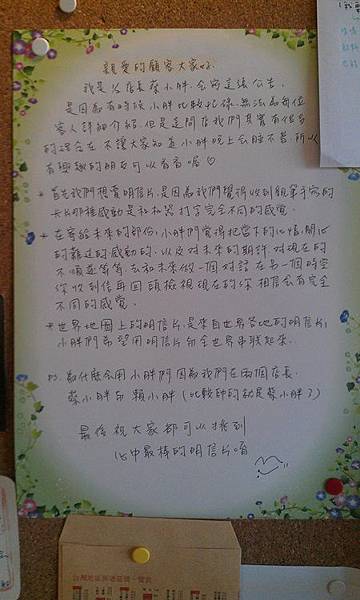 親愛的顧客大家好.
我是½店長蔡小胖, 会寫這張公告.
是因為有時候小胖比較忙碌, 無法為每位
客人詳細介紹. 但是這間店我們其實有很多
的理念在, 不讓大家知道小胖晚上会睡不著, 所以
有興趣的朋友可以看看喔♡
首先我們想賣明信片, 是因為我們覺得收到親筆手寫的
卡片那種感動是和机器打字完全不同的感覺.
在寄給未來的部份, 小胖們覺得把當下的心情, 開心
的難過的感動的, 以及對未來的期許, 對現在的
不順遂等等, 去和未來做一個對話, 在另一個時空
你收到信再回頭檢視現在的你, 相信会有完全
不同的感覺.
世界地圖上的明信片, 是來自世界各地的明信片,
小胖們希望用明信片和全世界串聯起來.
為什麼会用小胖們因為我們有兩個店長.
蔡小胖和賴小胖(比較帥的就是蔡小胖了)
最後祝大家都可以挑到
心中最棒的明信片唷